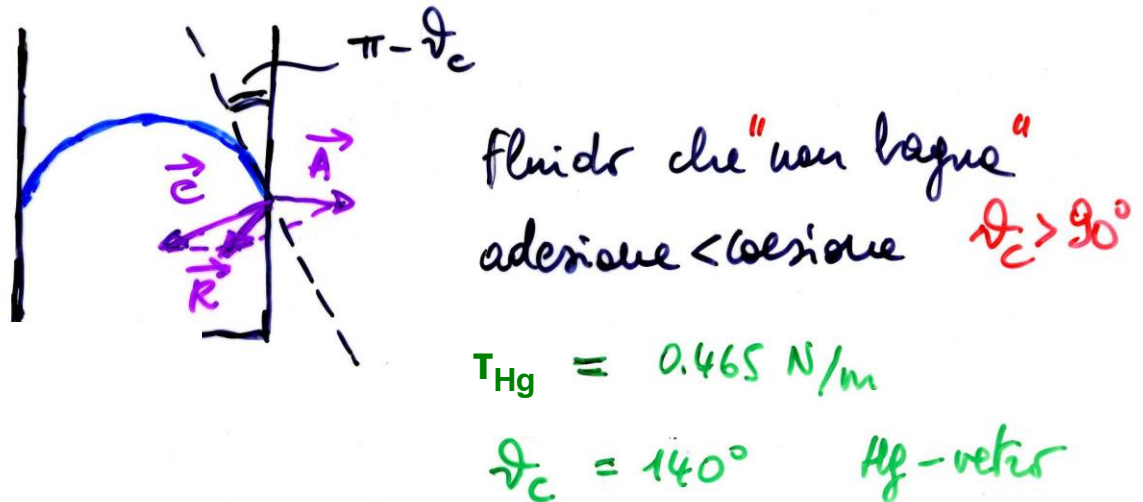 π - ϑc
A
C
R
fluido che "non bagna"
adesione < coesione ϑc > 90°
τHg = 0.465 N/m
ϑc = 140° Hg - vetro